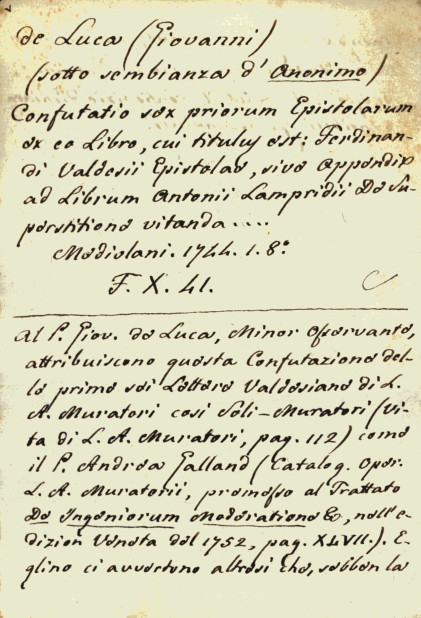 de Luca (Giovanni)
(sotto sembianza d' Anonimo)
Confutatio sex priorum Epistolarum
ex eo Libro, cui titulus est: Ferdinan-
di Valdesii Epistolae, sive Appendix
ad Librum Antonii Lampridii De Su-
perstitione vitanda ....
Mediolani. 1744. 1. 8.º
F. X. 41.
Al P. Giov. de Luca, Minor Osservante,
attribuiscono questa Confutazione del-
le prime sei Lettere Valdesiane di L.
A. Muratori così Soli-Muratori (Vi-
ta di L. A. Muratori, pag. 112) come
il P. Andrea Galland (Catalog. Oper.
L. A. Muratorii, premesso al Trattato
De Ingeniorum Moderatione &, nell'e-
dizion Veneta del 1752, pag. XLVII.). E-
glino ci avvertono altresì che, sebben la